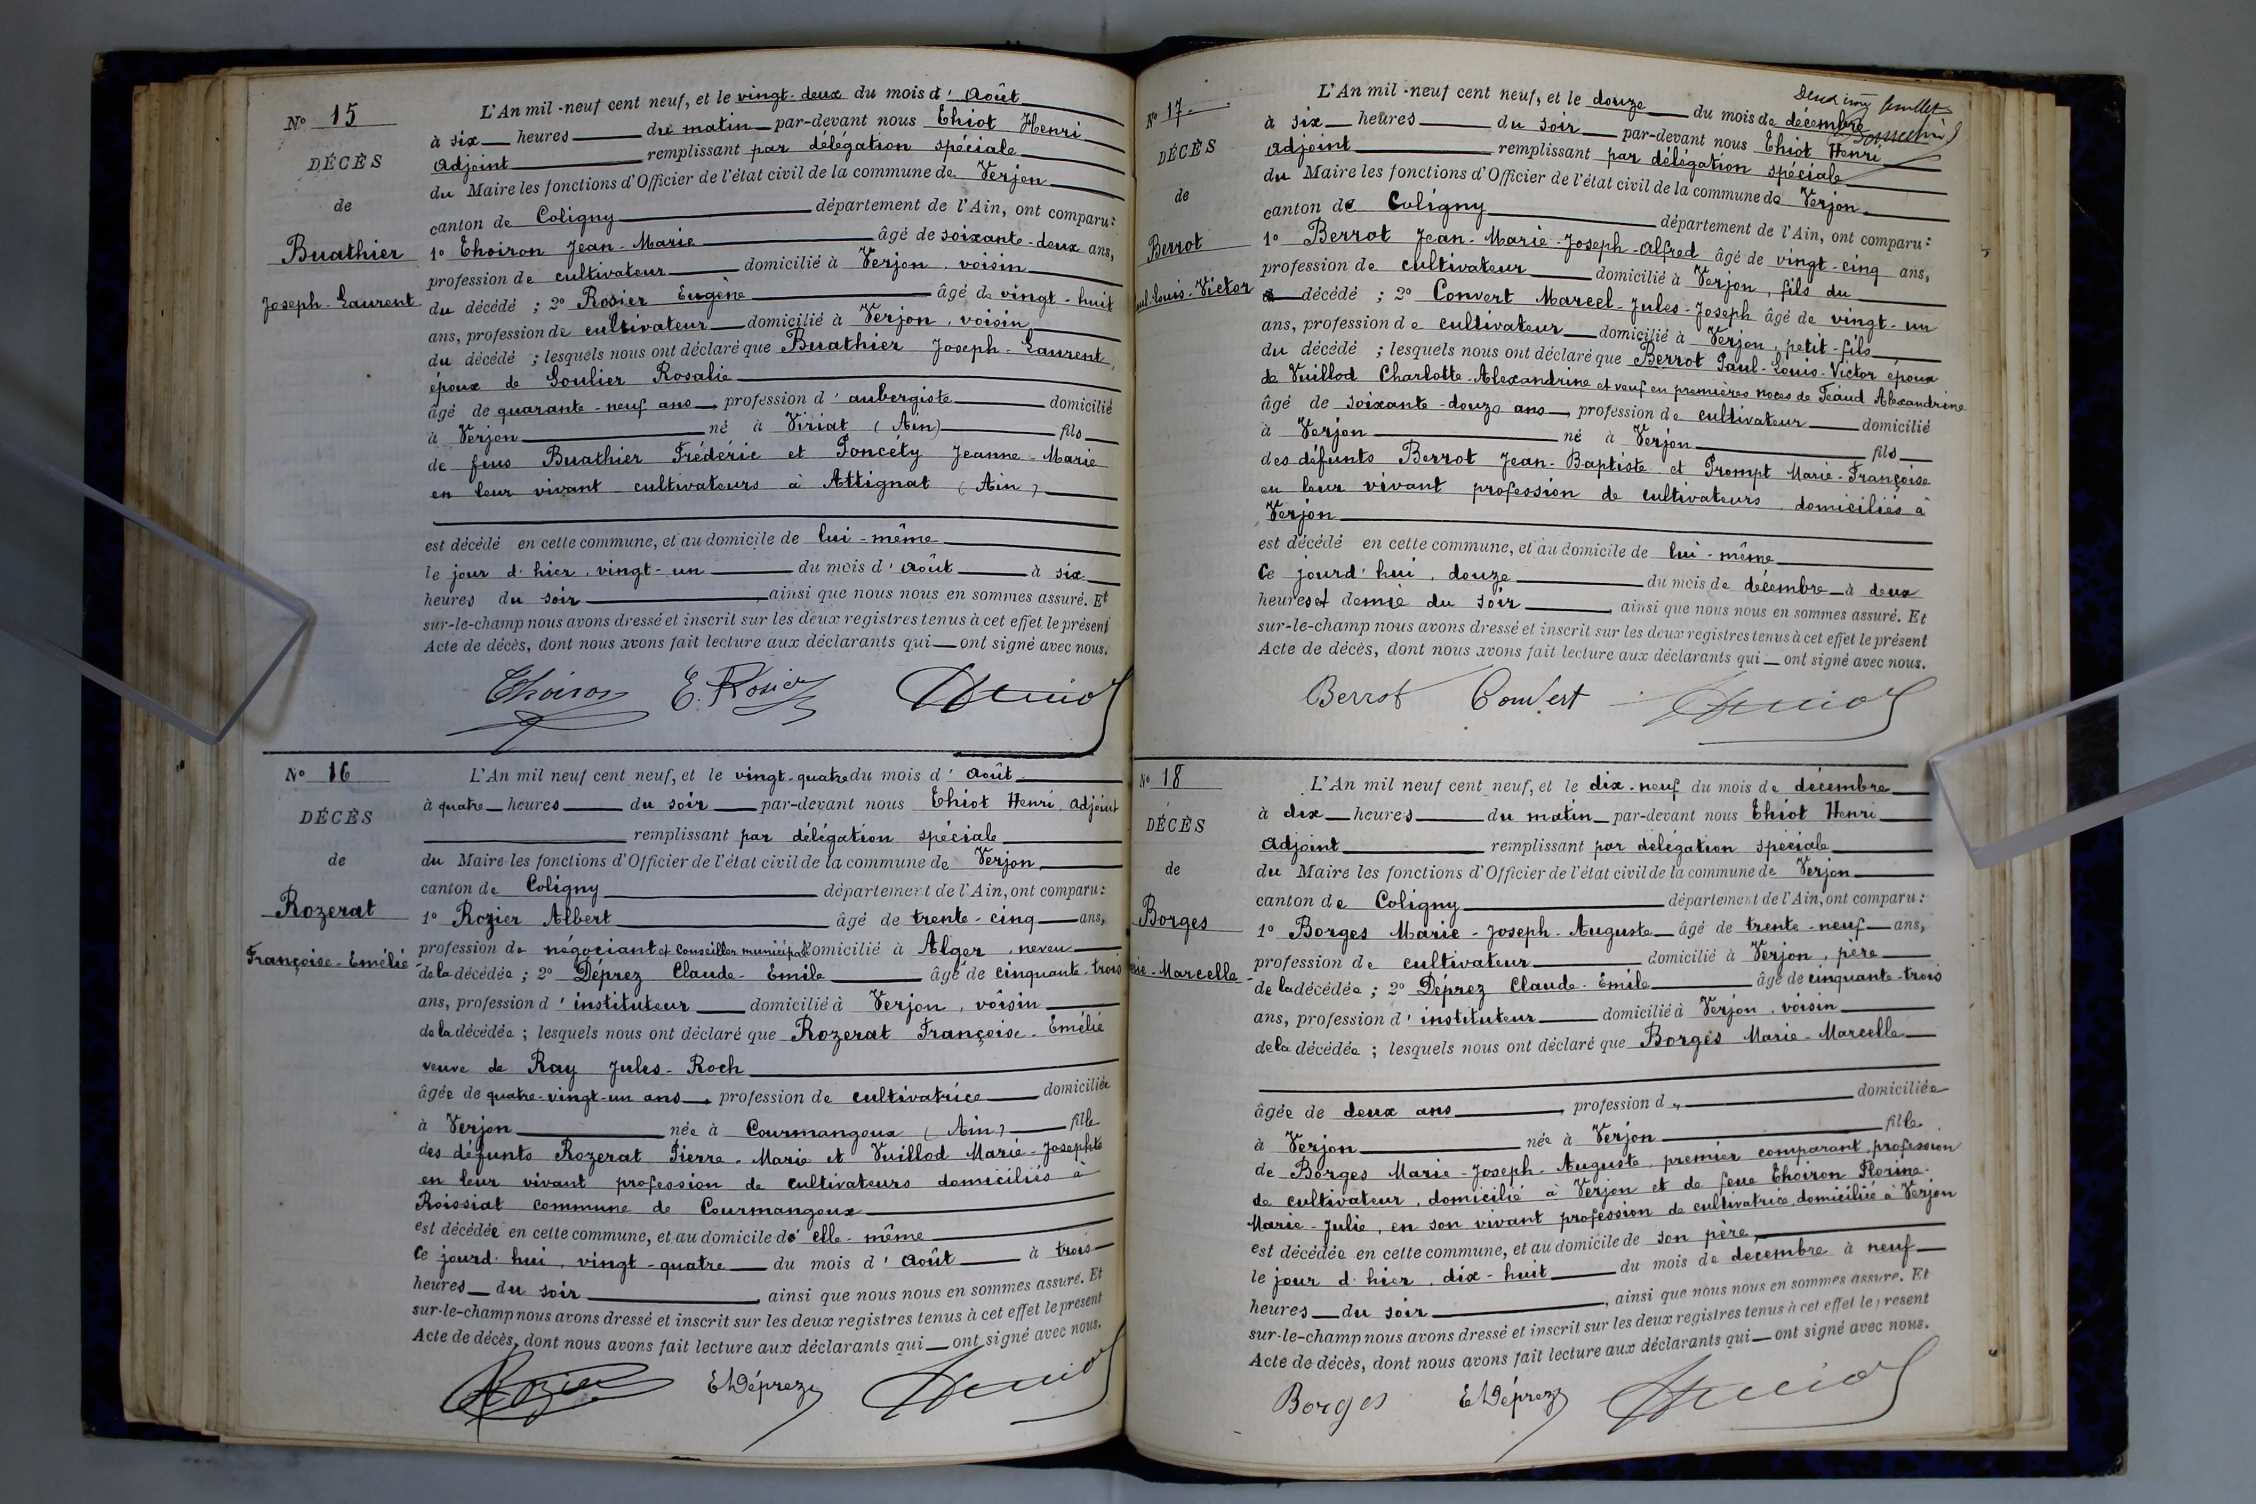 N° 15
DÉCÈS
de
Buathier
Joseph-Laurent
L'An mil-neuf cent neuf, et le vingt-deux du mois d' Août
à six heures du matin par-devant nous Thiot Henri
Adjoint remplissant par délégation spéciale
du Maire les fonctions d'Officier de l'état civil de la commune de Verjon
canton de Coligny département de l'Ain, ont comparu:
1° Thoiron Jean-Marie âgé de soixante-deux ans,
profession de cultivateur domicilié à Verjon, voisin
du décédé ; 2° Rosier Eugène âgé de vingt-huit
ans, profession de cultivateur domicilié à Verjon, voisin
du décédé ; lesquels nous ont déclaré que Buathier Joseph-Laurent,
époux de Goulier Rosalie
âgé de quarante-neuf ans, profession d' aubergiste domicilié
à Verjon né à Viriat (Ain) fils
de feus Buathier Frédéric et Poncéty Jeanne-Marie
en leur vivant cultivateurs à Attignat (Ain)
est décédé en cette commune, et au domicile de lui-même
le jour d'hier, vingt-un du mois d' Août à six
heures du soir, ainsi que nous nous en sommes assuré. Et
sur-le-champ nous avons dressé et inscrit sur les deux registres tenus à cet effet le présent
Acte de décès, dont nous avons fait lecture aux déclarants qui ont signé avec nous.
Thoiron E. Rosier
N° 16
DÉCÈS
de
Rozerat
Françoise-Emélie
L'An mil neuf cent neuf, et le vingt-quatre du mois d' Août
à quatre heures du soir par-devant nous Thiot Henri, Adjoint
remplissant par délégation spéciale
du Maire les fonctions d'Officier de l'état civil de la commune de Verjon
canton de Coligny département de l'Ain, ont comparu:
1° Rozier Albert âgé de trente-cinq ans,
profession de négociant et conseiller municipal domicilié à Alger, neveu
de la décédée ; 2° Déprez Claude-Emile âgé de cinquante-trois
ans, profession d' instituteur domicilié à Verjon, voisin
de la décédée ; lesquels nous ont déclaré que Rozerat Françoise-Emélie
veuve de Ray Jules-Roch
âgée de quatre-vingt-un ans, profession de cultivatrice domiciliée
à Verjon née à Courmangoux (Ain) fille
des défunts Rozerat Pierre-Marie et Vuillod Marie-Josephte
en leur vivant profession de cultivateurs domiciliés à
Roissiat commune de Courmangoux
est décédée en cette commune, et au domicile d' elle-même
Ce jourd'hui, vingt-quatre du mois d' Août à trois
heures du soir, ainsi que nous nous en sommes assuré. Et
sur-le-champ nous avons dressé et inscrit sur les deux registres tenus à cet effet le présent
Acte de décès, dont nous avons fait lecture aux déclarants qui ont signé avec nous.
Rozier E Déprez
Deuxième feuillet
N° 17
DÉCÈS
de
Berrot
Louis-Victor
L'An mil-neuf cent neuf, et le douze du mois de décembre
à six heures du soir par-devant nous Thiot Henri
Adjoint remplissant par délégation spéciale
du Maire les fonctions d'Officier de l'état civil de la commune de Verjon
canton de Coligny département de l'Ain, ont comparu:
1° Berrot Jean-Marie-Joseph-Alfred âgé de vingt-cinq ans,
profession de cultivateur domicilié à Verjon, fils du
décédé ; 2° Convert Marcel-Jules-Joseph âgé de vingt-un
ans, profession de cultivateur domicilié à Verjon, petit-fils
du décédé ; lesquels nous ont déclaré que Berrot Paul-Louis-Victor époux
de Vuillod Charlotte-Alexandrine et veuf en premières noces de Féaud Alexandrine
âgé de soixante-douze ans, profession de cultivateur domicilié
à Verjon né à Verjon fils
des défunts Berrot Jean-Baptiste et Prompt Marie-Françoise
en leur vivant profession de cultivateurs, domiciliés à
Verjon
est décédé en cette commune, et au domicile de lui-même
Ce jourd'hui, douze du mois de décembre à deux
heures et demie du soir, ainsi que nous nous en sommes assuré. Et
sur-le-champ nous avons dressé et inscrit sur les deux registres tenus à cet effet le présent
Acte de décès, dont nous avons fait lecture aux déclarants qui ont signé avec nous.
Berrot Convert
N° 18
DÉCÈS
de
Borges
Marcelle
L'An mil neuf cent neuf, et le dix-neuf du mois de décembre
à dix heures du matin par-devant nous Thiot Henri
Adjoint remplissant par délégation spéciale
du Maire les fonctions d'Officier de l'état civil de la commune de Verjon
canton de Coligny département de l'Ain, ont comparu:
1° Borges Marie-Joseph-Auguste âgé de trente-neuf ans,
profession de cultivateur domicilié à Verjon, père
de la décédée ; 2° Déprez Claude-Emile âgé de cinquante-trois
ans, profession d' instituteur domicilié à Verjon, voisin
de la décédée ; lesquels nous ont déclaré que Borges Marie-Marcelle
âgée de deux ans, profession d domiciliée
à Verjon née à Verjon fille
de Borges Marie-Joseph-Auguste, premier comparant, profession
de cultivateur, domicilié à Verjon et de feue Thoiron Florine-
Marie-Julie, en son vivant profession de cultivatrice, domiciliée à Verjon
est décédée en cette commune, et au domicile de son père,
le jour d'hier, dix-huit du mois de décembre à neuf
heures du soir, ainsi que nous nous en sommes assuré. Et
sur-le-champ nous avons dressé et inscrit sur les deux registres tenus à cet effet le présent
Acte de décès, dont nous avons fait lecture aux déclarants qui ont signé avec nous.
Borges E Déprez